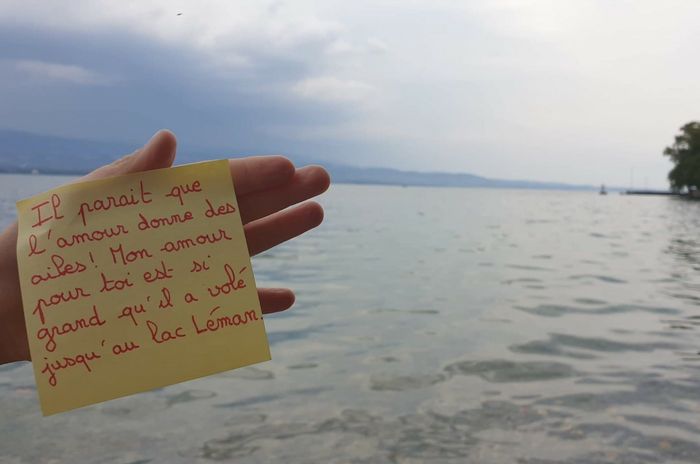 Il parait que
l'amour donne des
ailes! Mon amour
pour toi est si
grand qu'il a volé
jusqu'au lac Léman.